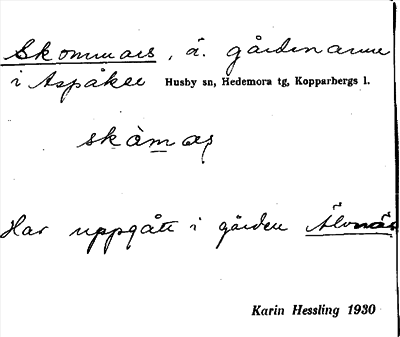 Skommars, ä. gårdnamn
i Aspåker Husby sn, Hedemora tg, Kopparbergs l.
skòmas
Har uppgått i gården Älvnäs
Karin Hessling 1930